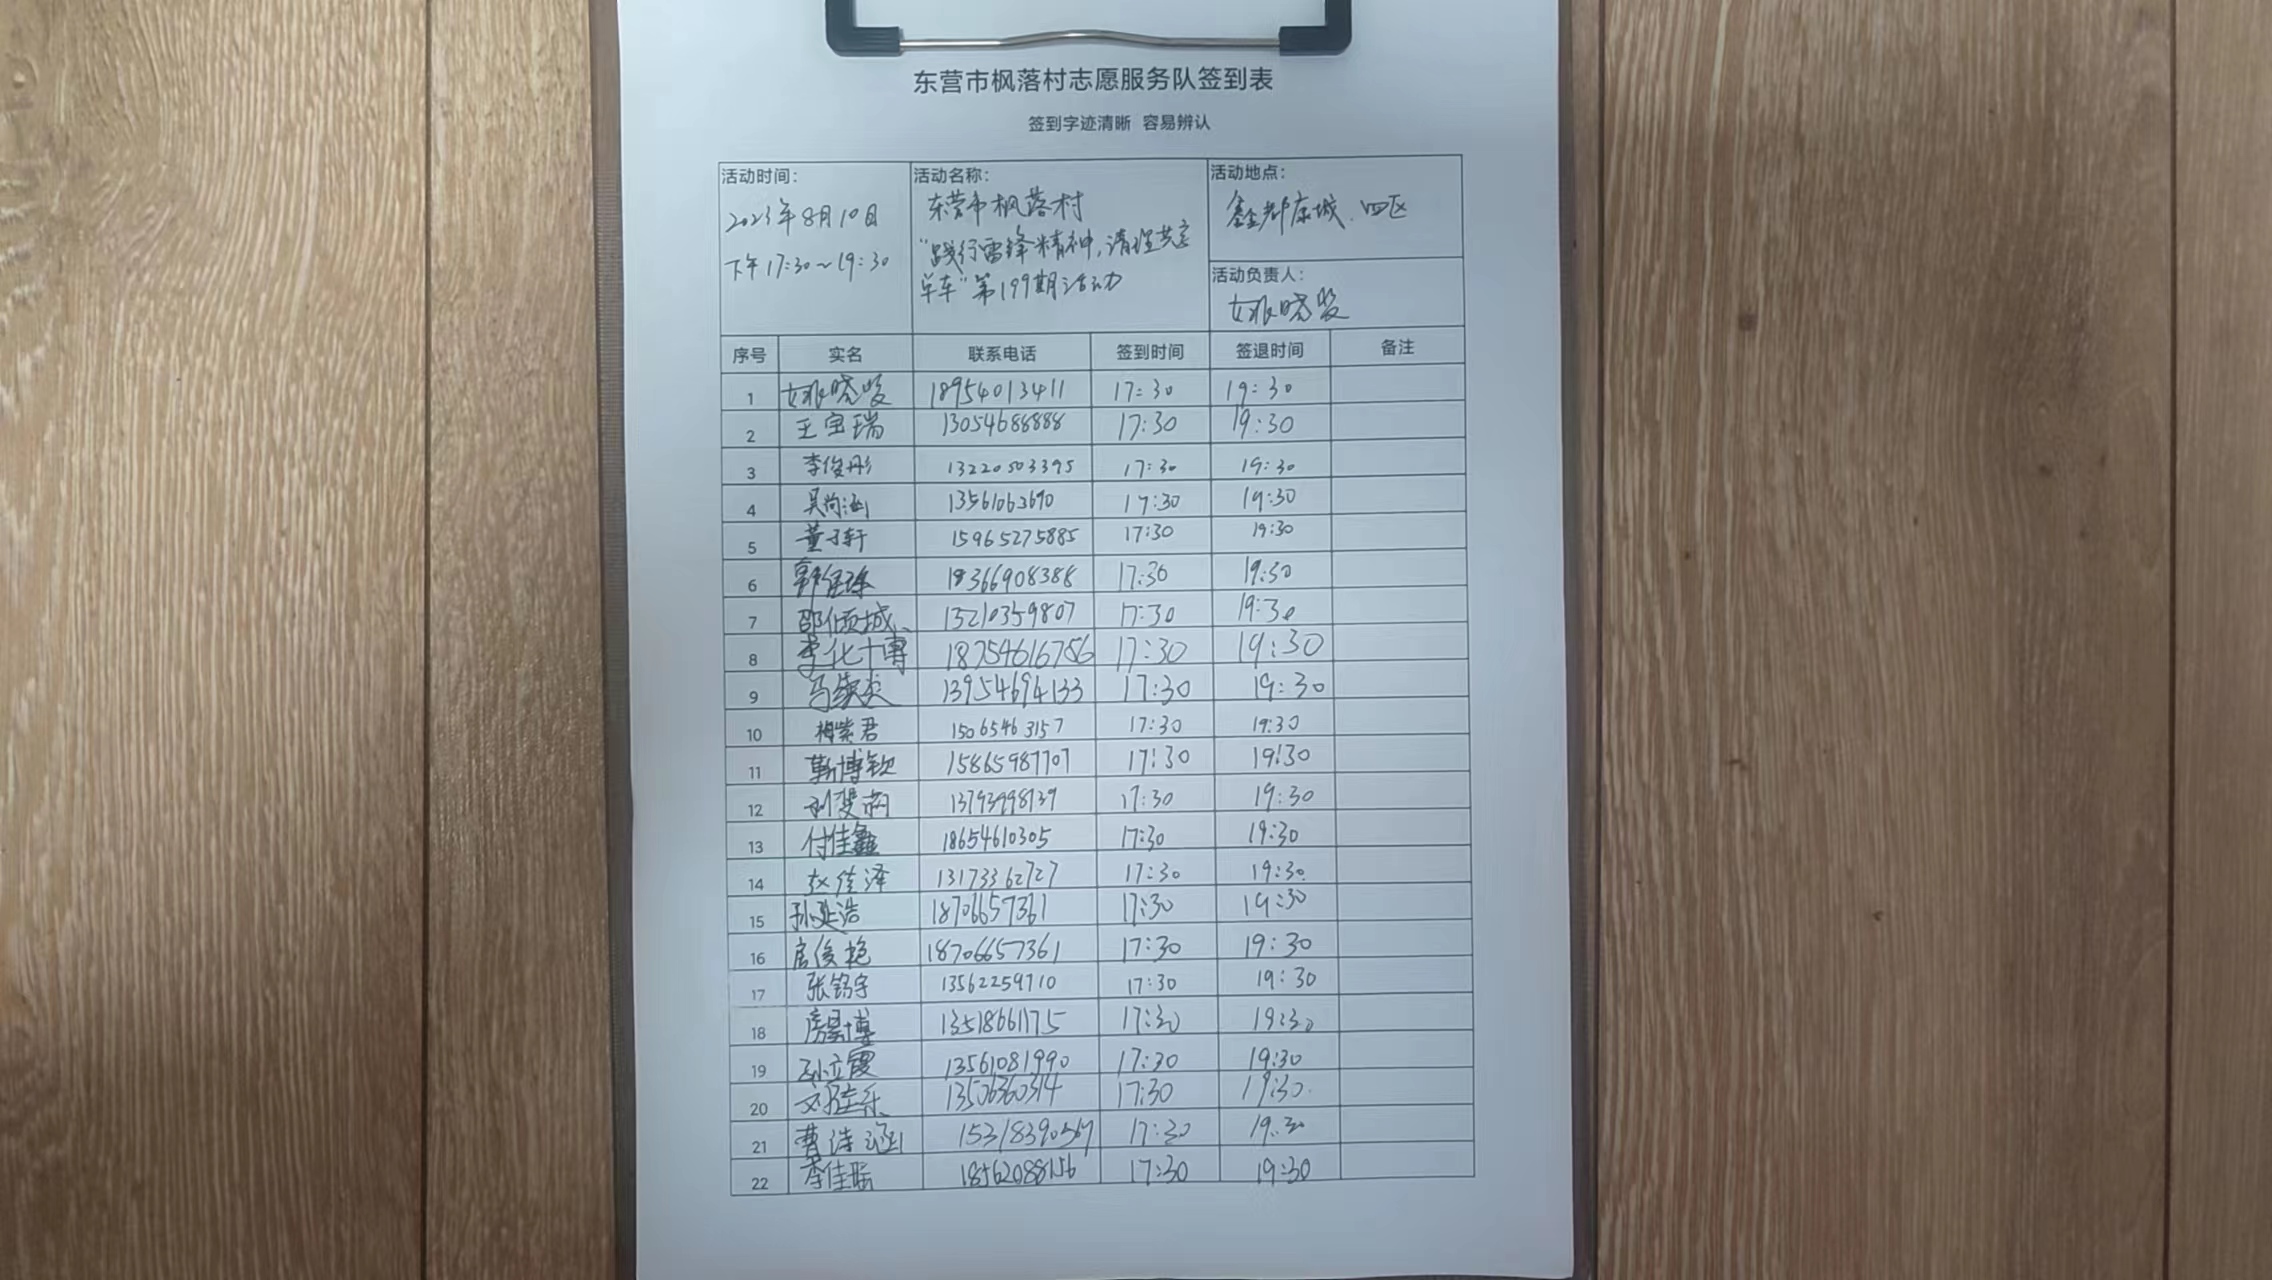 东营市枫落村志愿服务队签到表
签到字迹清晰 容易辨认
活动时间:
2023年8月10日
下午17:30~19:30
活动名称:
东营市枫落村
“践行雷锋精神,清理共享
单车”第199期活动
活动地点:
鑫都康城.四区
活动负责人:
序号 实名 联系电话 签到时间 签退时间 备注
1 18954013411 17:30 19:30
2 王宝瑞 13054688888 17:30 19:30
3 李俊彤 13220503395 17:30 19:30
4 吴尚涵 13561063690 17:30 19:30
5 董子轩 15965275885 17:30 19:30
6 18366908388 17:30 19:30
7 邵倾城 13210359807 17:30 19:30
8 李化十博 18754616786 17:30 19:30
9 13954694133 17:30 19:30
10 梅紫君 15065463157 17:30 19:30
11 靳博钦 15865987707 17:30 19:30
12 13793998739 17:30 19:30
13 付佳鑫 18654610305 17:30 19:30
14 赵佳泽 13173362727 17:30 19:30
15 孙延浩 18706657361 17:30 19:30
16 房俊艳 18706657361 17:30 19:30
17 张铭宇 13562259710 17:30 19:30
18 房昊博 13518661175 17:30 19:30
19 孙立霞 13561081990 17:30 19:30
20 13506360314 17:30 19:30
21 曹诗涵 17:30 19:30
22 18562088156 17:30 19:30